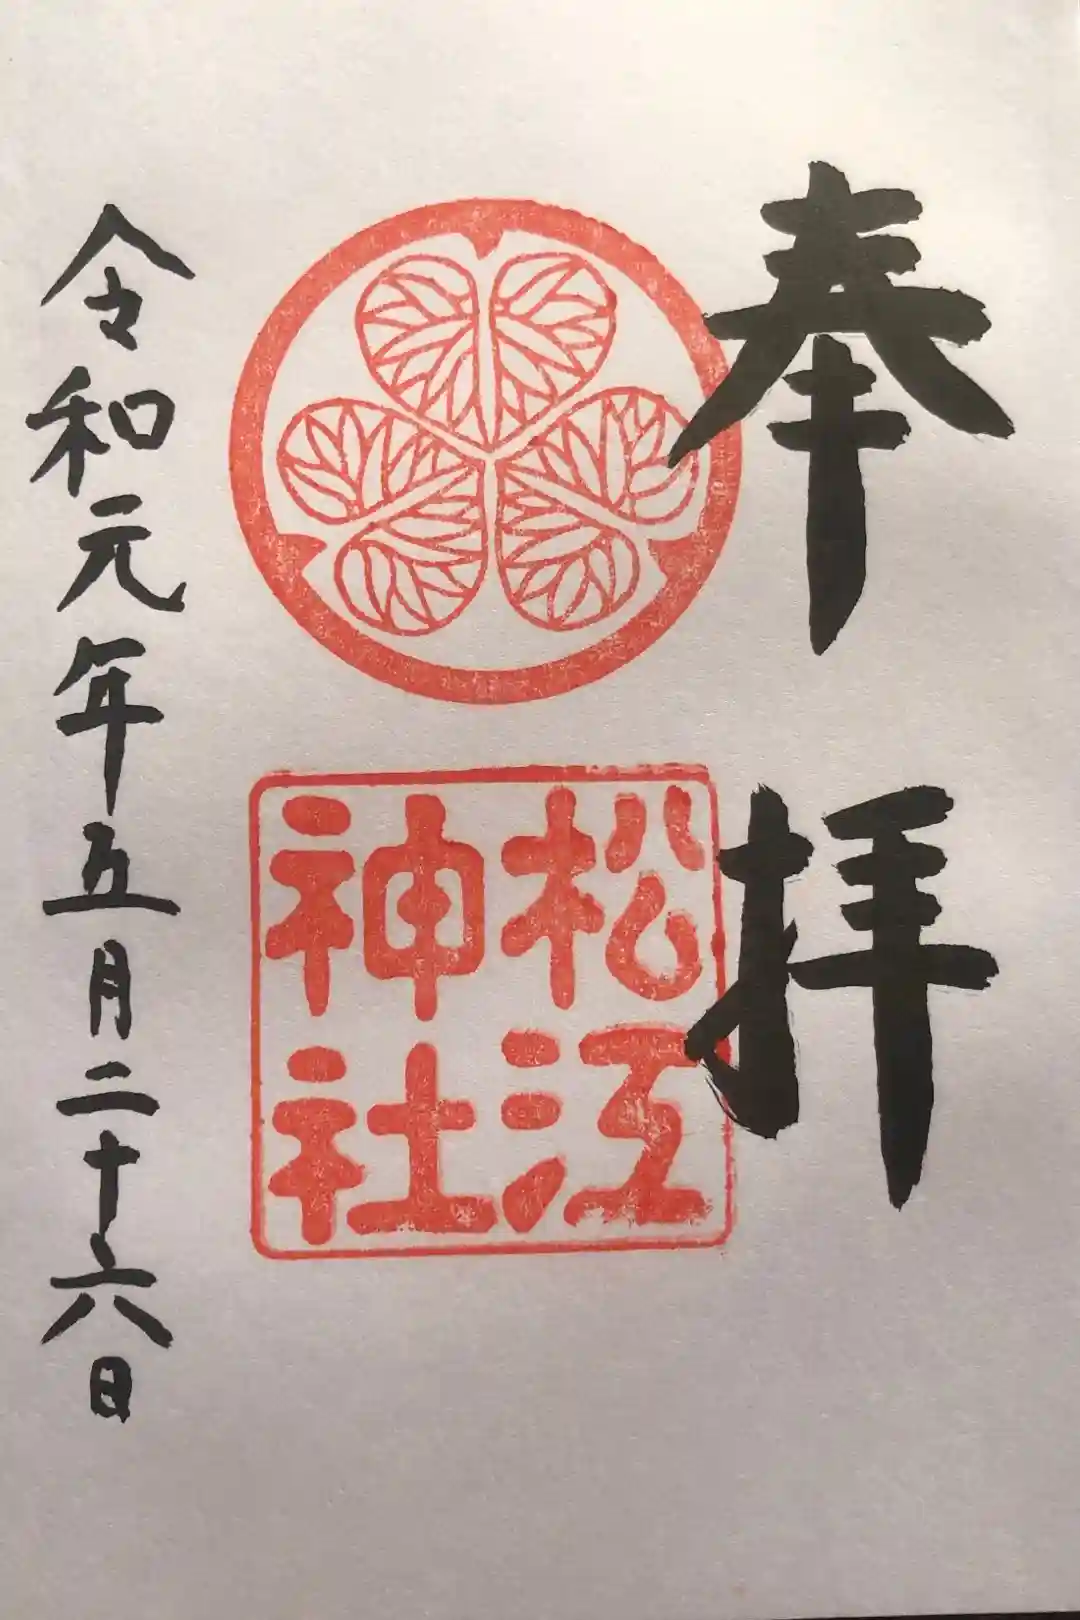 奉拝
松江
神社
令和元年五月二十六日